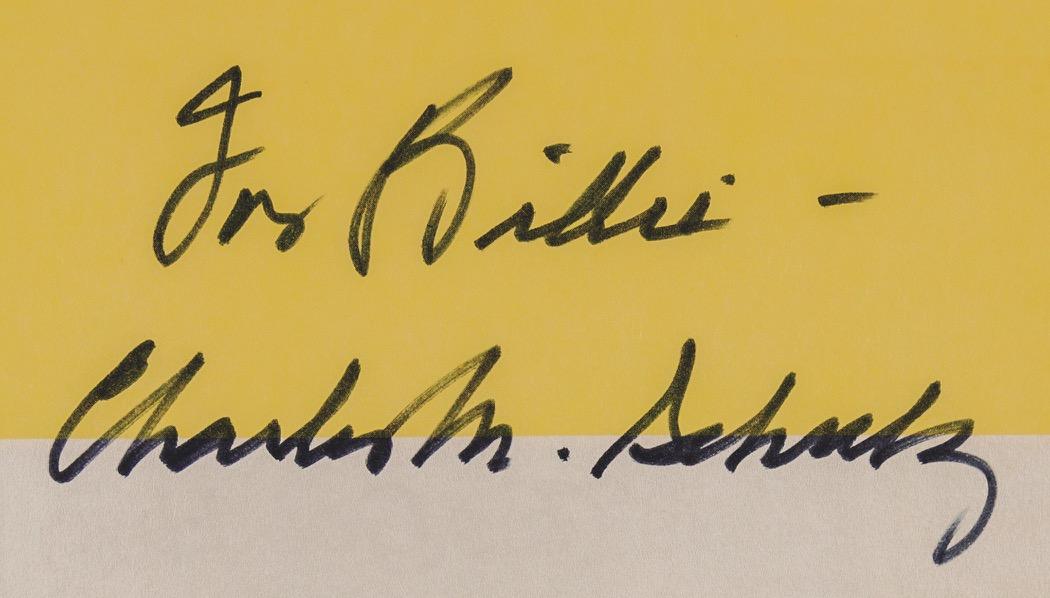 For Billie -
Charles M. Schulz